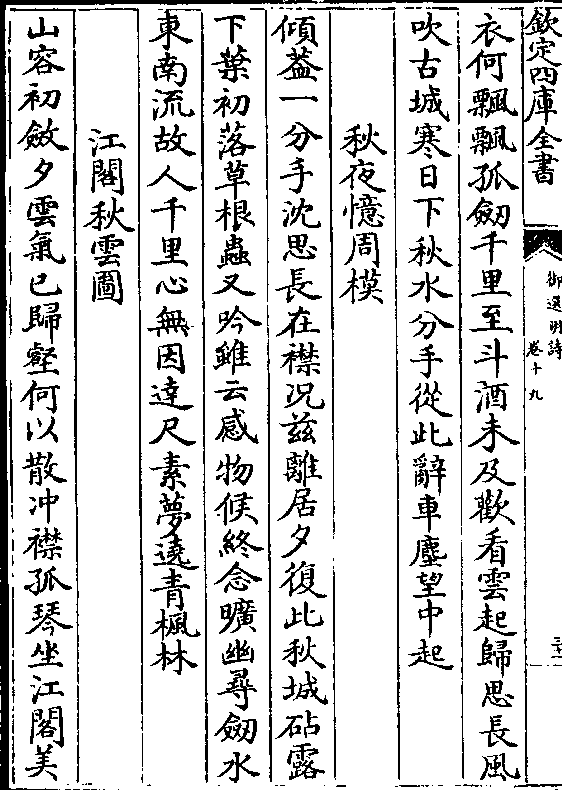 欽定四庫全書
御選明詩
卷十九
三十
衣何飄飄孤劒千里至斗酒未及歡看雲起歸思長風
吹古城寒日下秋水分手從此辭車塵望中起
秋夜憶周模
傾葢一分手沈思長在襟况兹離居夕復此秋城砧露
下葉初落草根蟲又吟雖云感物候終念曠幽尋劒水
東南流故人千里心無因達尺素夢遶青楓林
江閣秋雲圖
山容初斂夕雲氣已歸壑何以散冲襟孤琴坐江閣美